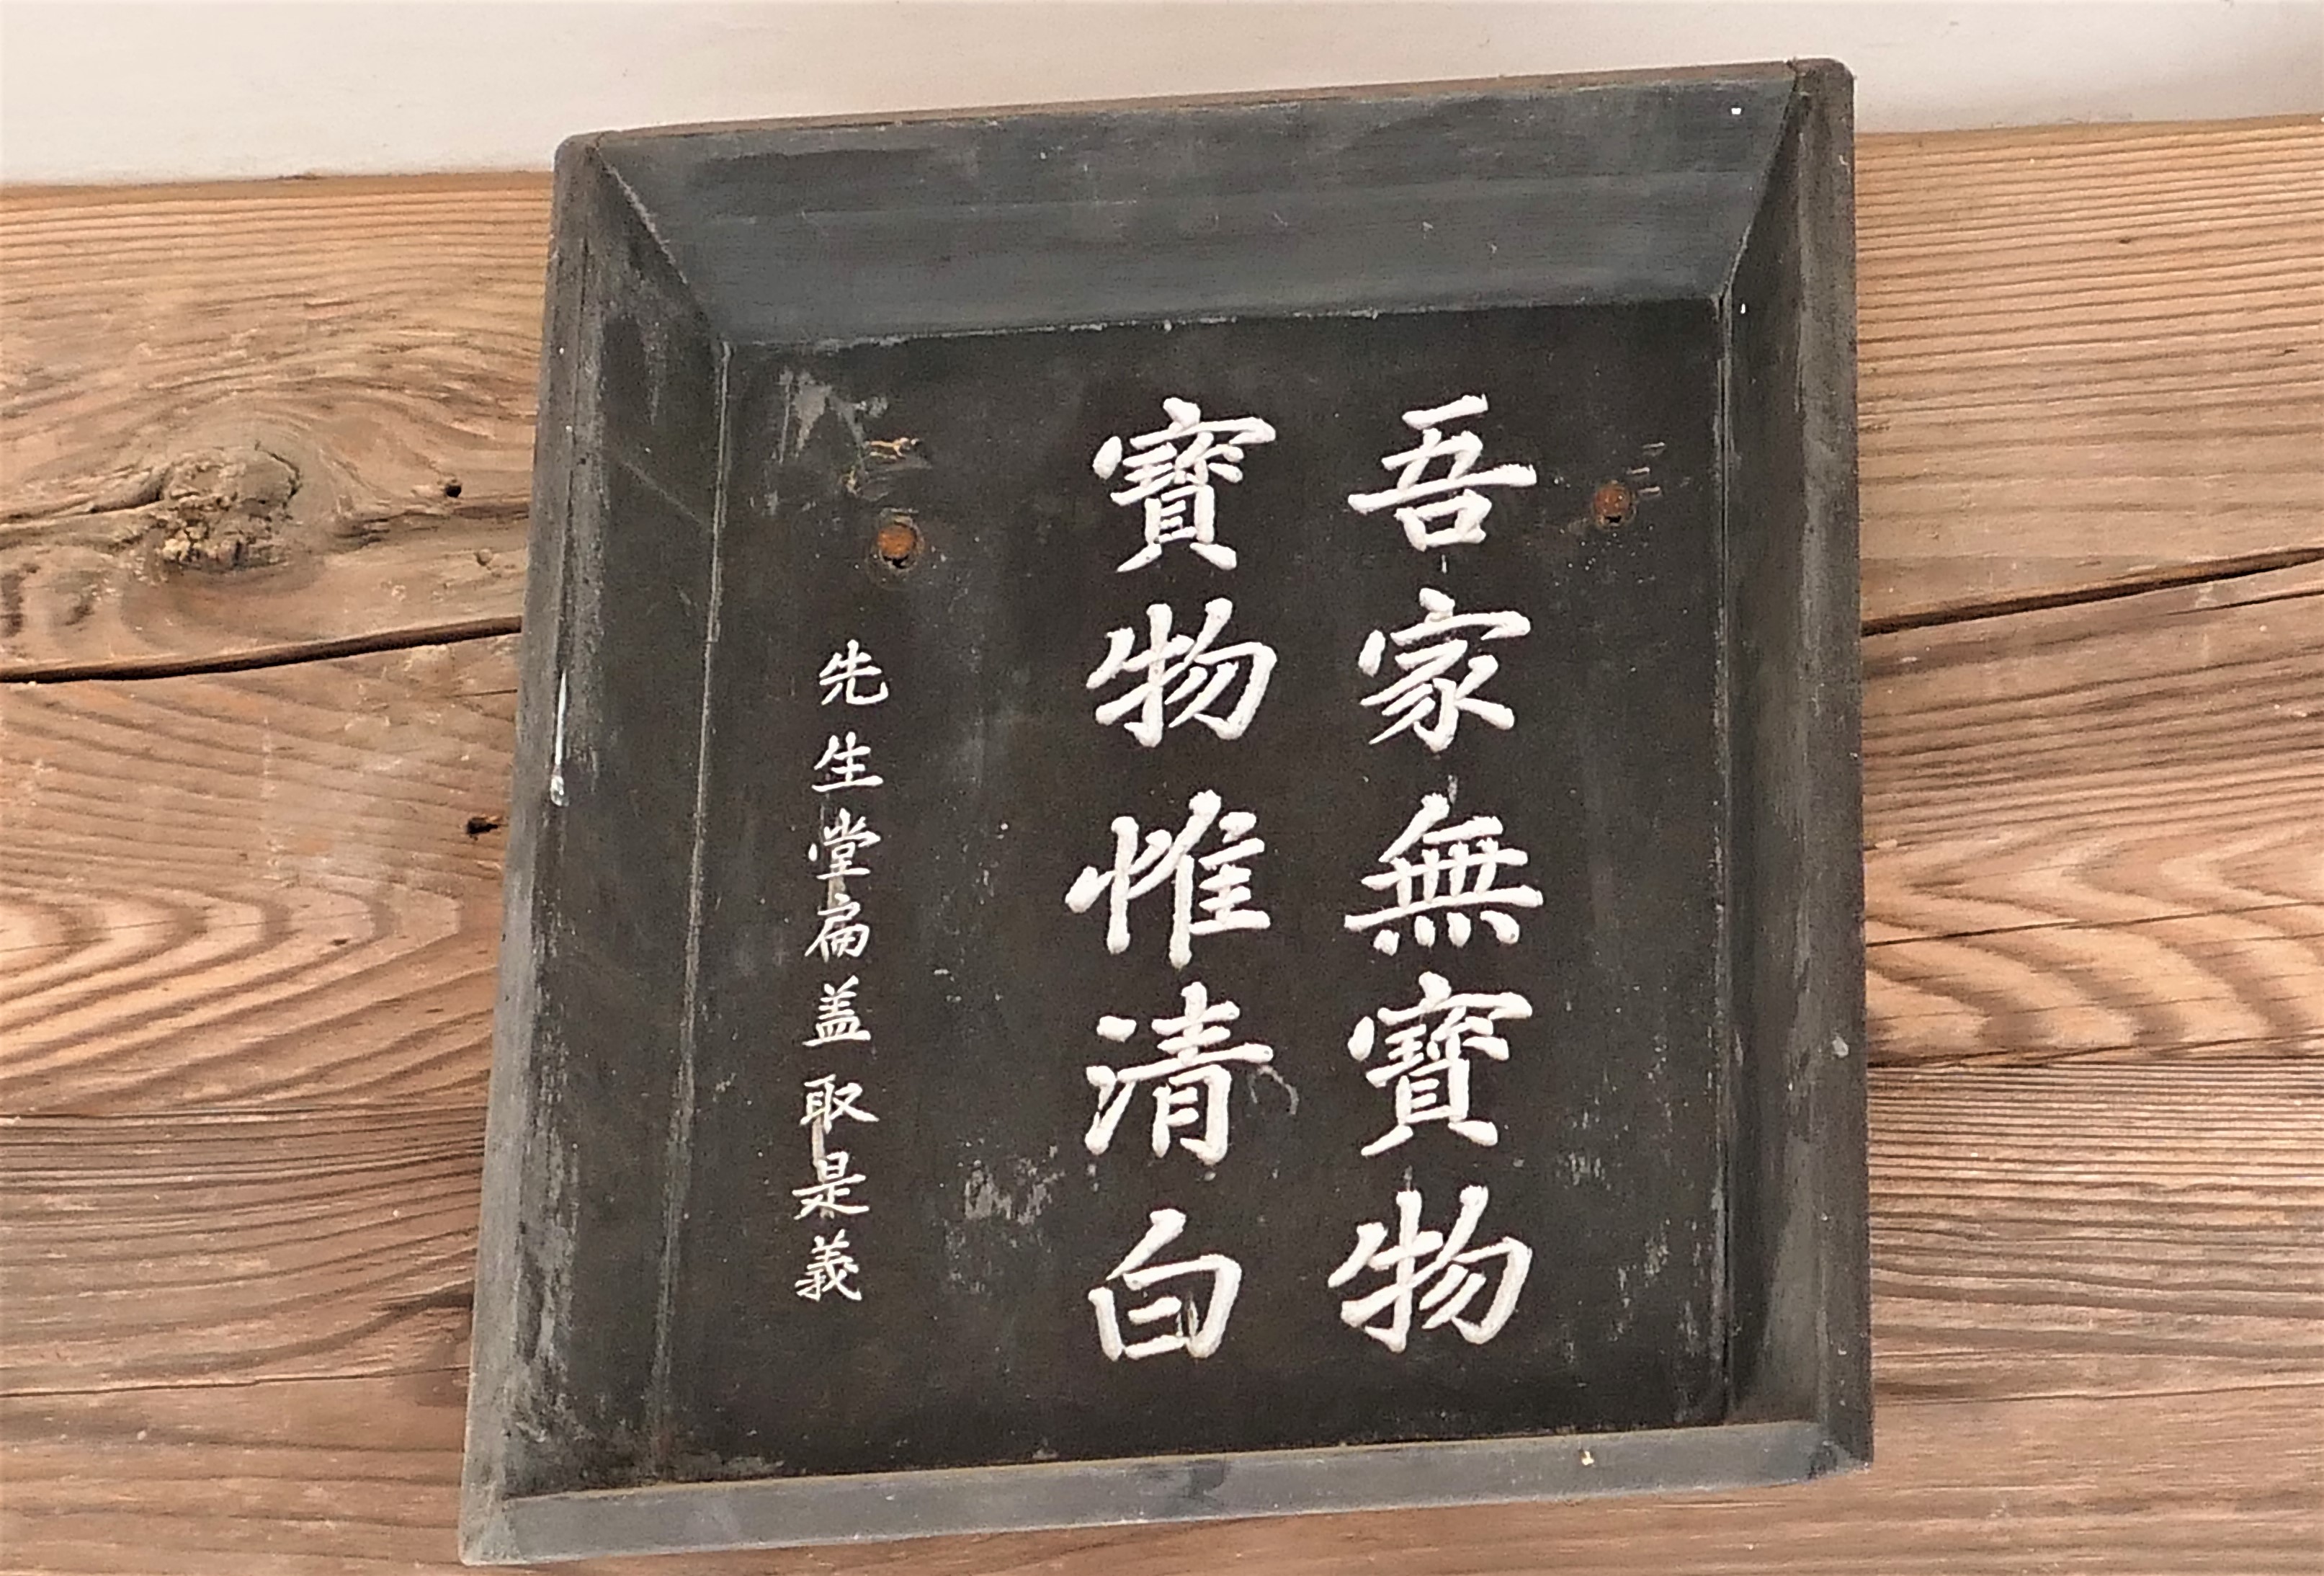 吾家無寶物
寶物惟清白
先生堂扁盖取是義